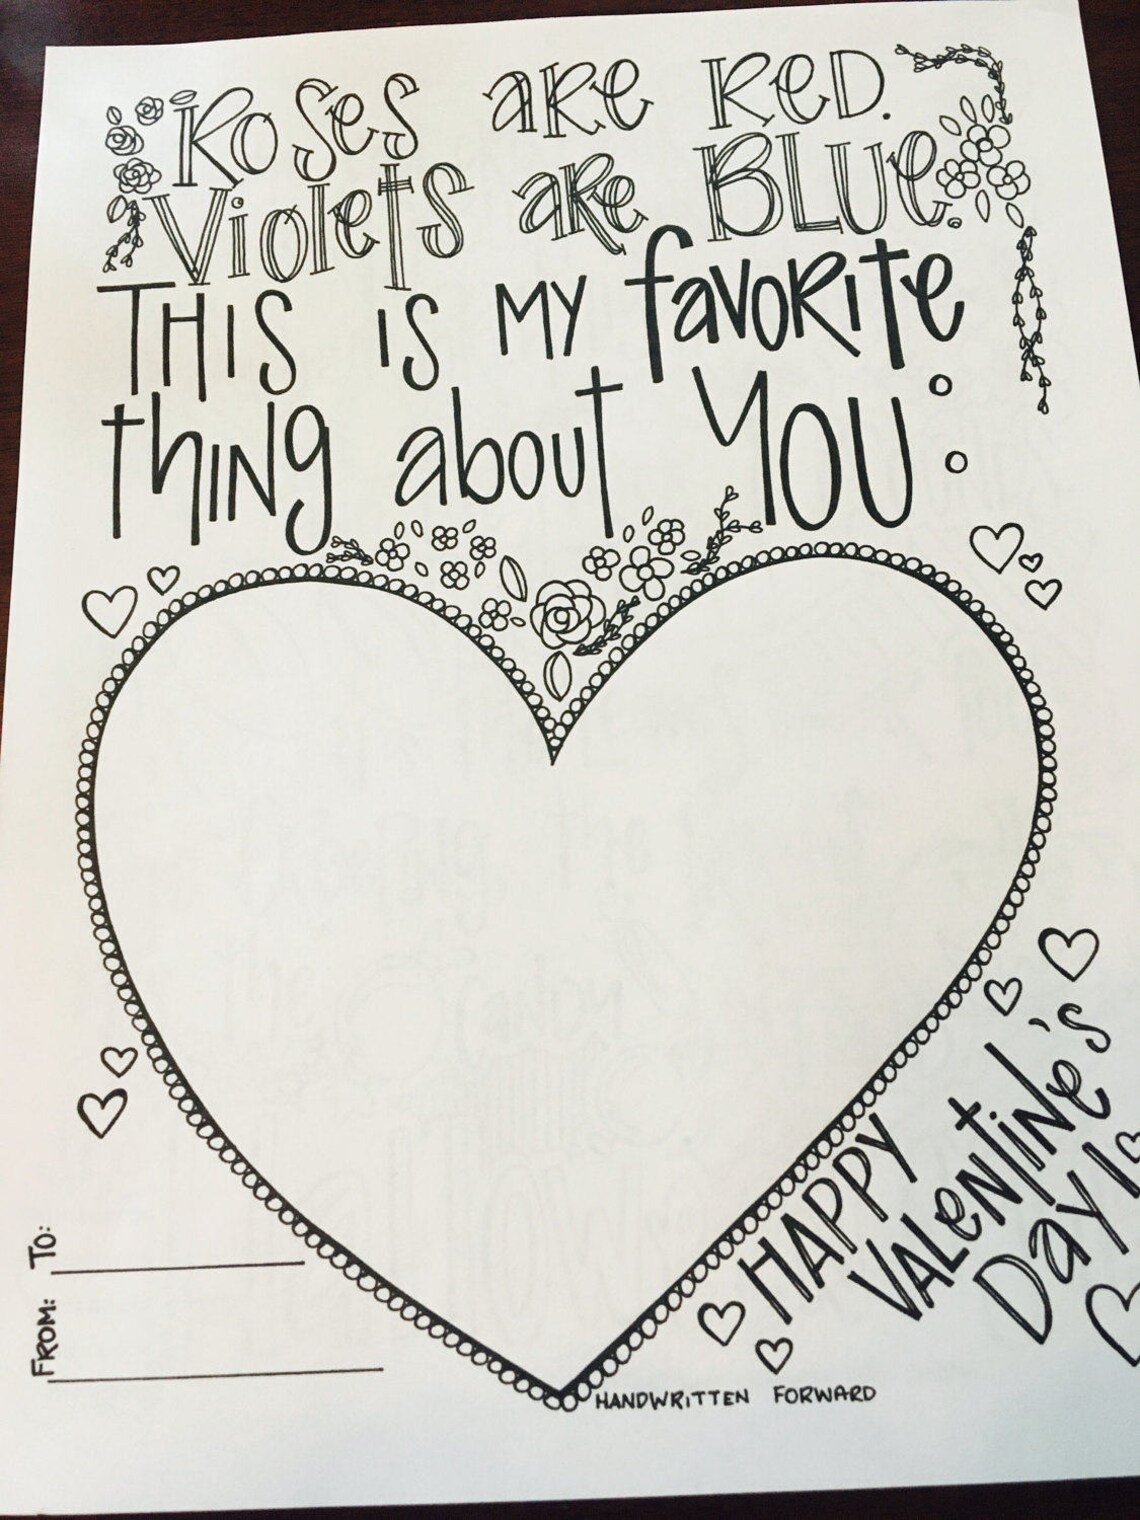 Roses are Red.
Violets are Blue.
This is my favorite
thing about YOU:
Happy
Valentine's
Day!
To:
From:
HANDWRITTEN FORWARD